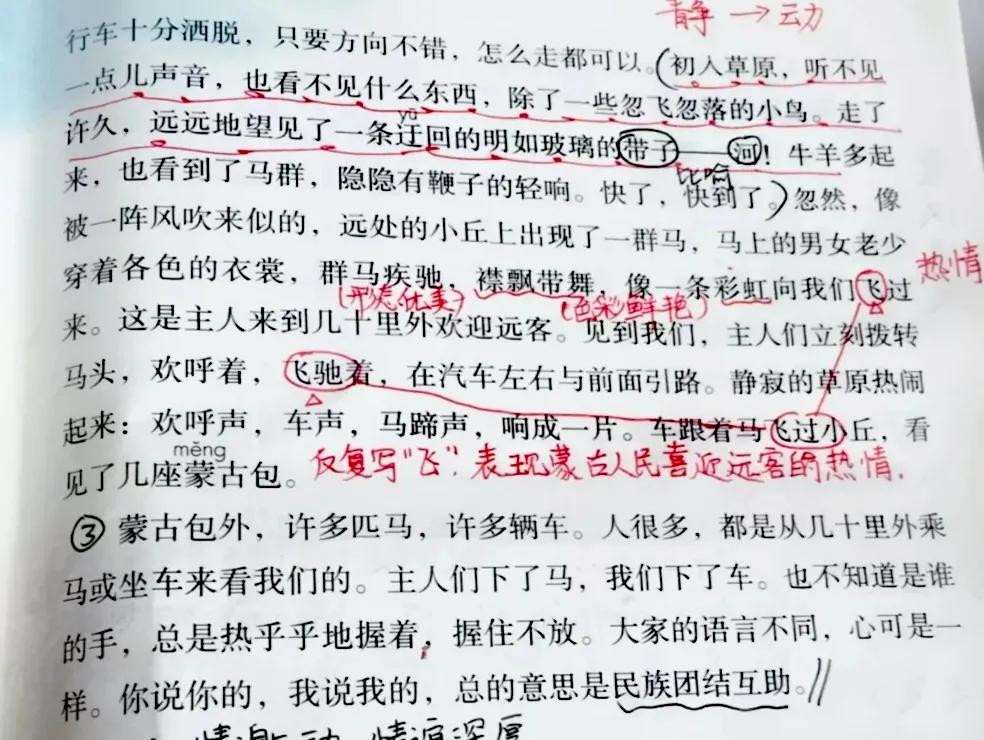 静→动
行车十分洒脱，只要方向不错，怎么走都可以。(初入草原，听不见
一点儿声音，也看不见什么东西，除了一些忽飞忽落的小鸟。走了
yū
许久，远远地望见了一条迂回的明如玻璃的带子——河！牛羊多起
比喻
来，也看到了马群，隐隐有鞭子的轻响。快了，快到了。)忽然，像
被一阵风吹来似的，远处的小丘上出现了一群马，马上的男女老少
穿着各色的衣裳，群马疾驰，襟飘带舞，像一条彩虹向我们飞过
热情
(形态优美)
(色彩鲜艳)
来。这是主人来到几十里外欢迎远客。见到我们，主人们立刻拨转
马头，欢呼着，飞驰着，在汽车左右与前面引路。静寂的草原热闹
起来：欢呼声，车声，马蹄声，响成一片。车跟着马飞过小丘，看
měng
见了几座蒙古包。
反复写"飞"，表现蒙古人民喜迎远客的热情.
③蒙古包外，许多匹马，许多辆车。人很多，都是从几十里外乘
马或坐车来看我们的。主人们下了马，我们下了车。也不知道是谁
的手，总是热乎乎地握着，握住不放。大家的语言不同，心可是一
样。你说你的，我说我的，总的意思是民族团结互助。//